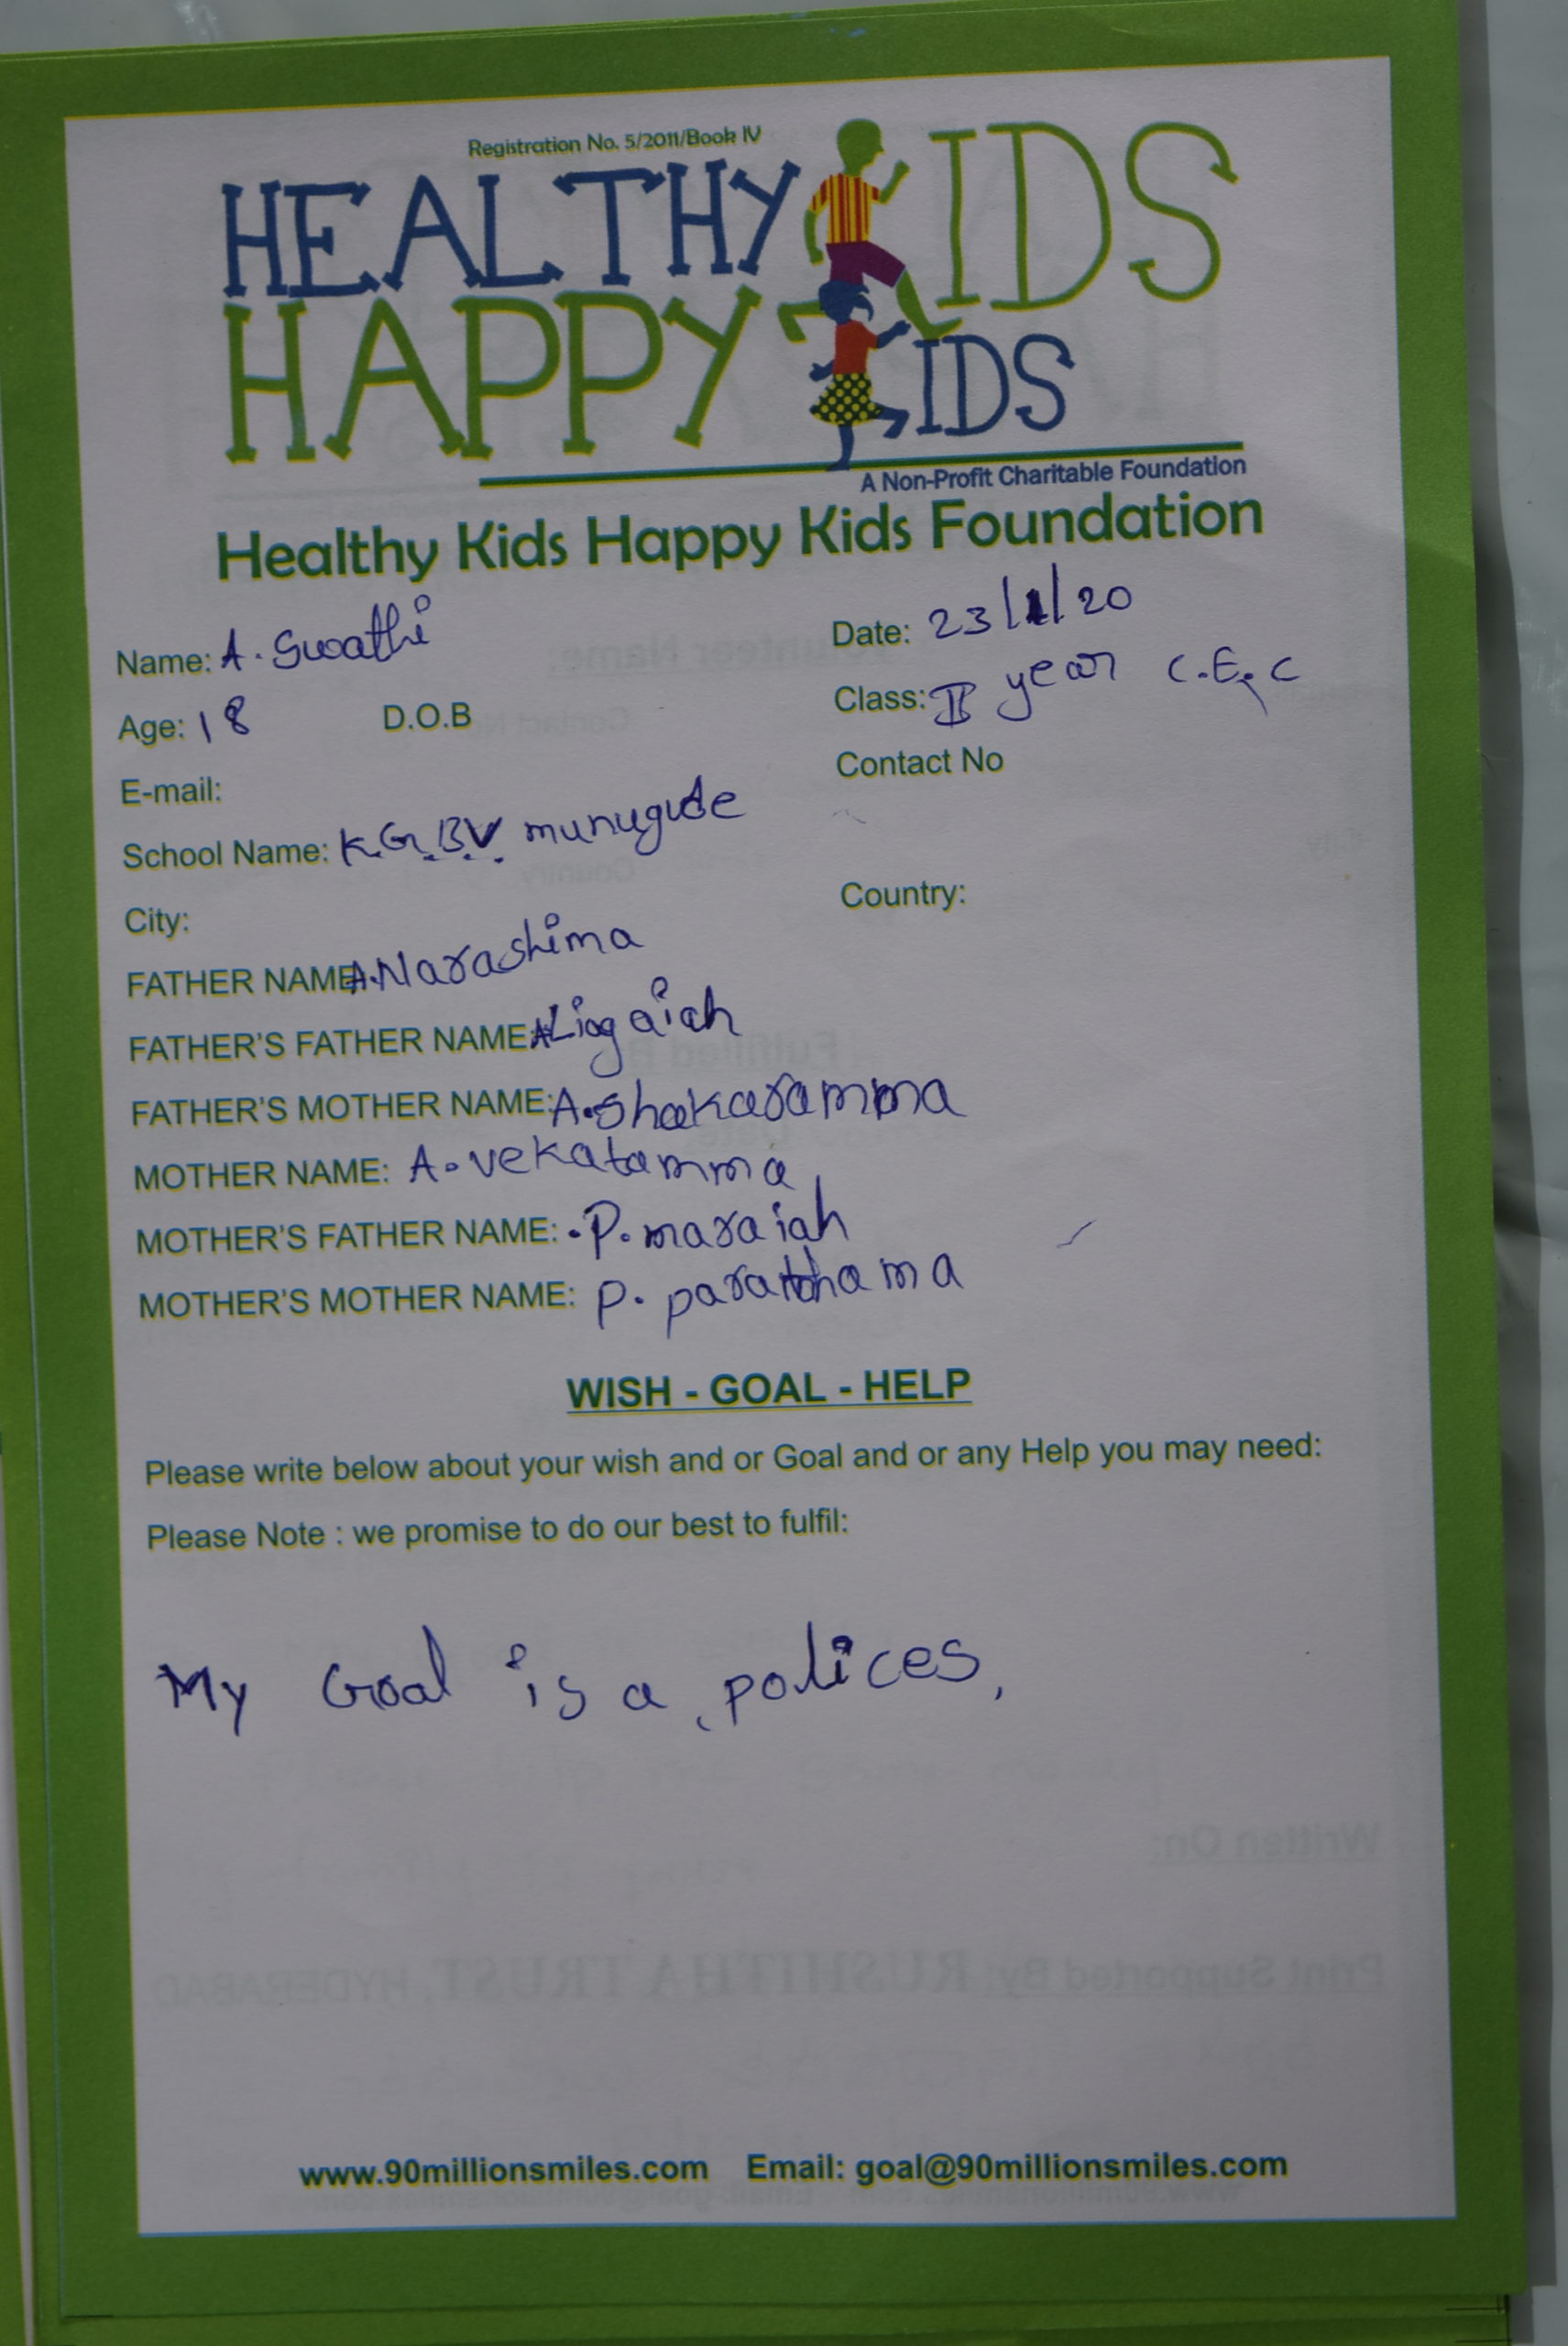 Registration No. 5/2011/Book IV
HEALTHY KIDS
HAPPY KIDS
A Non-Profit Charitable Foundation
Healthy Kids Happy Kids Foundation
Name: A. Swathi Date: 23/1/20
Age: 18 D.O.B Class: II year C.E.C
E-mail: Contact No
School Name: K.G.B.V. munugude
City: Country:
FATHER NAME: A. Narashima
FATHER'S FATHER NAME: A Liogaiah
FATHER'S MOTHER NAME: A. Shakaramma
MOTHER NAME: A. vekatamma
MOTHER'S FATHER NAME: P. maraiah
MOTHER'S MOTHER NAME: P.
WISH - GOAL - HELP
Please write below about your wish and or Goal and or any Help you may need:
Please Note : we promise to do our best to fulfil:
My Goal is a polices,
www.90millionsmiles.com Email: goal@90millionsmiles.com